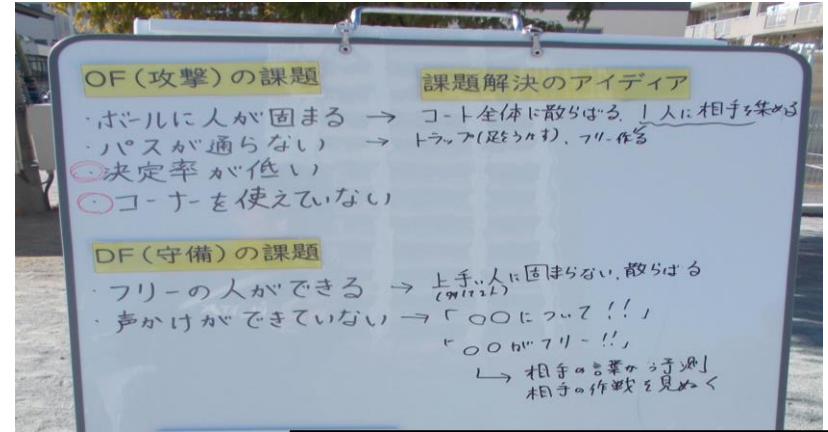 OF(攻撃)の課題
課題解決のアイディア
・ボールに人が固まる → コート全体に散らばる、1人に相手を集める
・パスが通らない → トラップ(足をうかす)、フリー作る
・決定率が低い
・コーナーを使えていない
DF(守備)の課題
・フリーの人ができる → 上手い人に固まらない、散らばる
・声かけができていない → 「〇〇について!!」
「〇〇がフリー!!」
↳ 相手の言葉から予測
相手の作戦を見ぬく